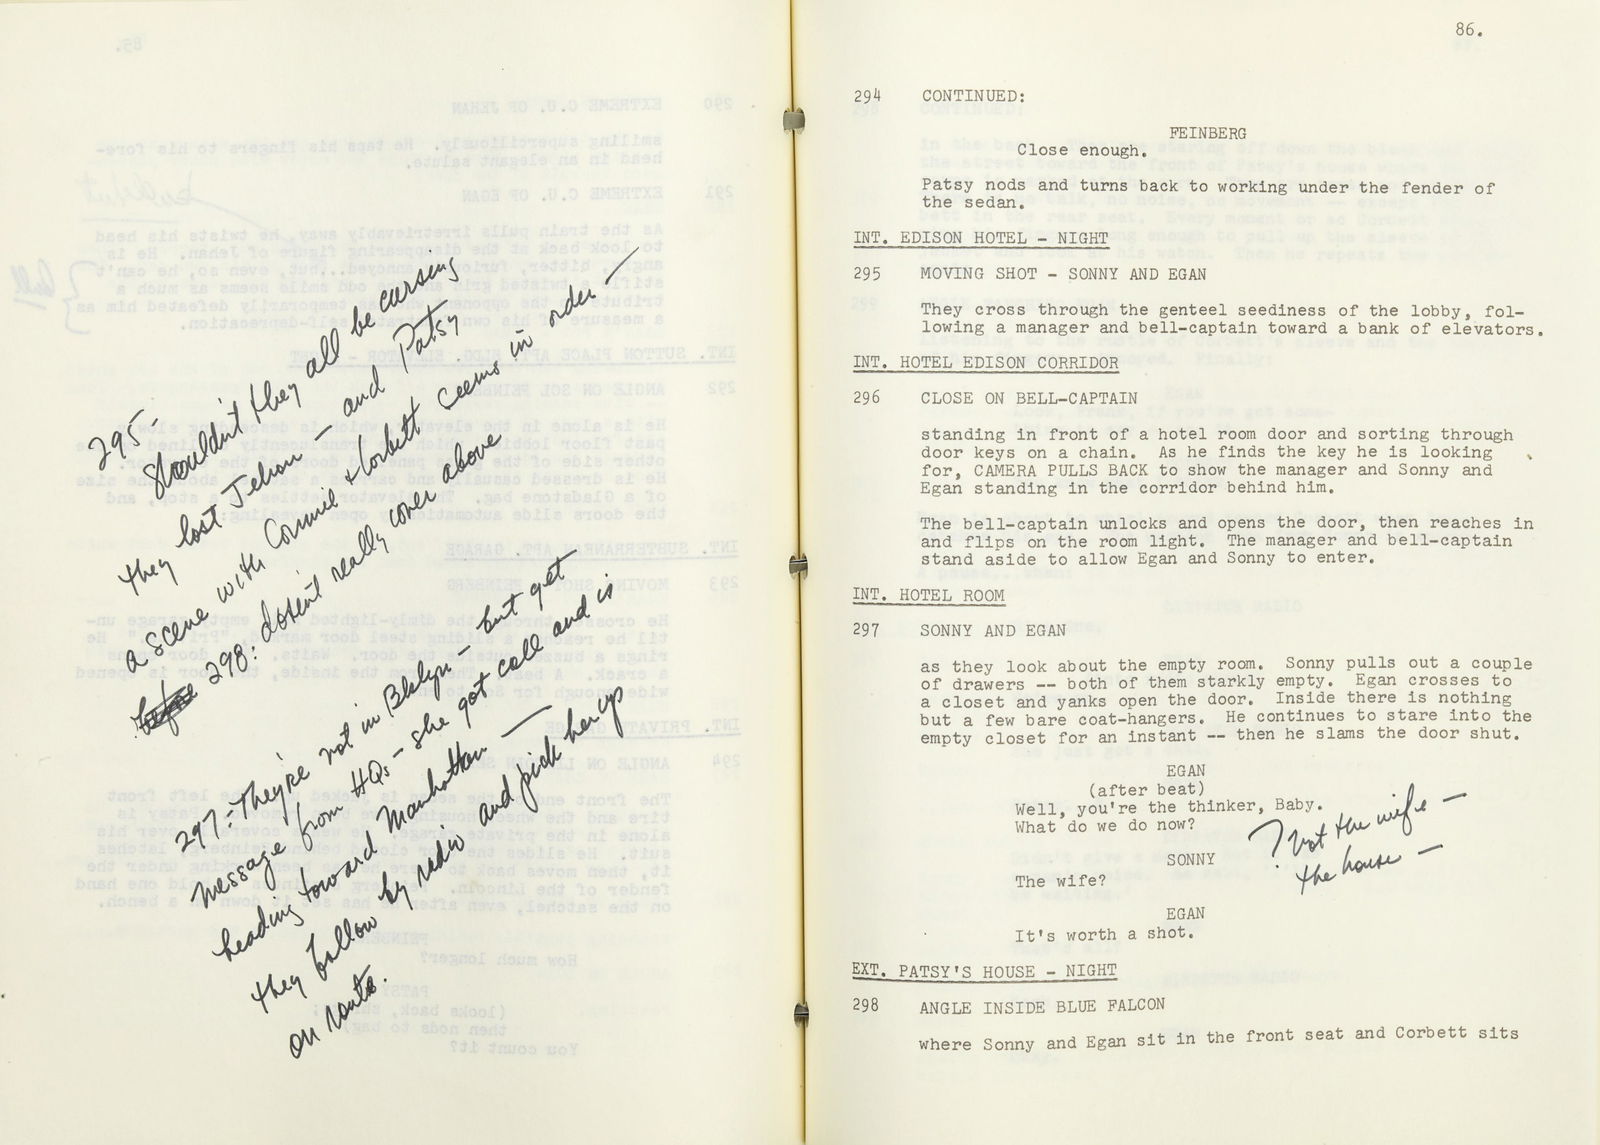 295-
Shouldn't they all be cursing
they lost Jehan - and Patsy
a scene with Carmel + Corbett seems in order -
298: dosen't really cover above
297- They're not in Bklyn - but get
message from HQs - she got call and is
heading toward Manhattan -
they follow by radio and pick her up
on route.
86.
294 CONTINUED:
FEINBERG
Close enough.
Patsy nods and turns back to working under the fender of
the sedan.
INT. EDISON HOTEL - NIGHT
295 MOVING SHOT - SONNY AND EGAN
They cross through the genteel seediness of the lobby, fol-
lowing a manager and bell-captain toward a bank of elevators.
INT. HOTEL EDISON CORRIDOR
296 CLOSE ON BELL-CAPTAIN
standing in front of a hotel room door and sorting through
door keys on a chain. As he finds the key he is looking
for, CAMERA PULLS BACK to show the manager and Sonny and
Egan standing in the corridor behind him.
The bell-captain unlocks and opens the door, then reaches in
and flips on the room light. The manager and bell-captain
stand aside to allow Egan and Sonny to enter.
INT. HOTEL ROOM
297 SONNY AND EGAN
as they look about the empty room. Sonny pulls out a couple
of drawers -- both of them starkly empty. Egan crosses to
a closet and yanks open the door. Inside there is nothing
but a few bare coat-hangers. He continues to stare into the
empty closet for an instant -- then he slams the door shut.
EGAN
(after beat)
Well, you're the thinker, Baby.
What do we do now?
? Not the wife -
the house -
SONNY
The wife?
EGAN
It's worth a shot.
EXT. PATSY'S HOUSE - NIGHT
298 ANGLE INSIDE BLUE FALCON
where Sonny and Egan sit in the front seat and Corbett sits